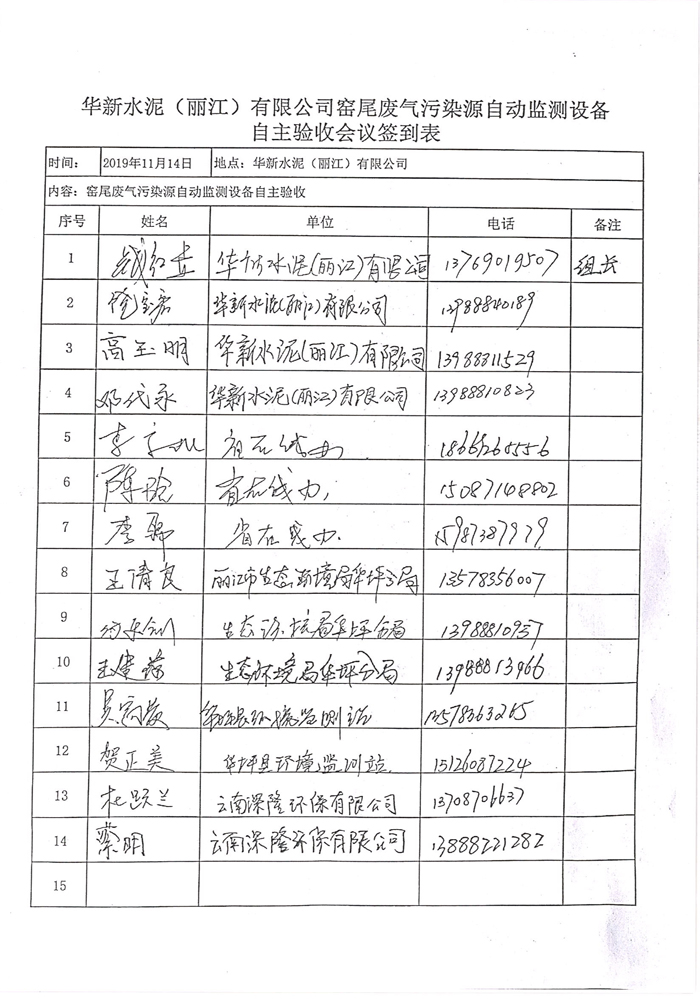 华新水泥（丽江）有限公司窑尾废气污染源自动监测设备
自主验收会议签到表
时间： 2019年11月14日 地点：华新水泥（丽江）有限公司
内容：窑尾废气污染源自动监测设备自主验收
序号 姓名 单位 电话 备注
1 华新水泥(丽江)有限公司 13769019507 组长
2 华新水泥(丽江)有限公司 13988840189
3 高玉明 华新水泥(丽江)有限公司 13988811529
4 邓代永 华新水泥(丽江)有限公司 13988810823
5 李
6 陈玲 省在线办 15087148802
7 李 省在线办 15987387979
8 王清良 丽江市生态环境局华坪分局 13578356007
9 生态环境局华坪分局 13988810937
10 王建 生态环境局华坪分局 13988813966
11 吴 环境监测站 13578363265
12 贺正美 华坪县环境监测站 15126087224
13 杜跃兰 云南深隆环保有限公司 13708706637
14 蔡明 云南深隆环保有限公司 13888221282
15